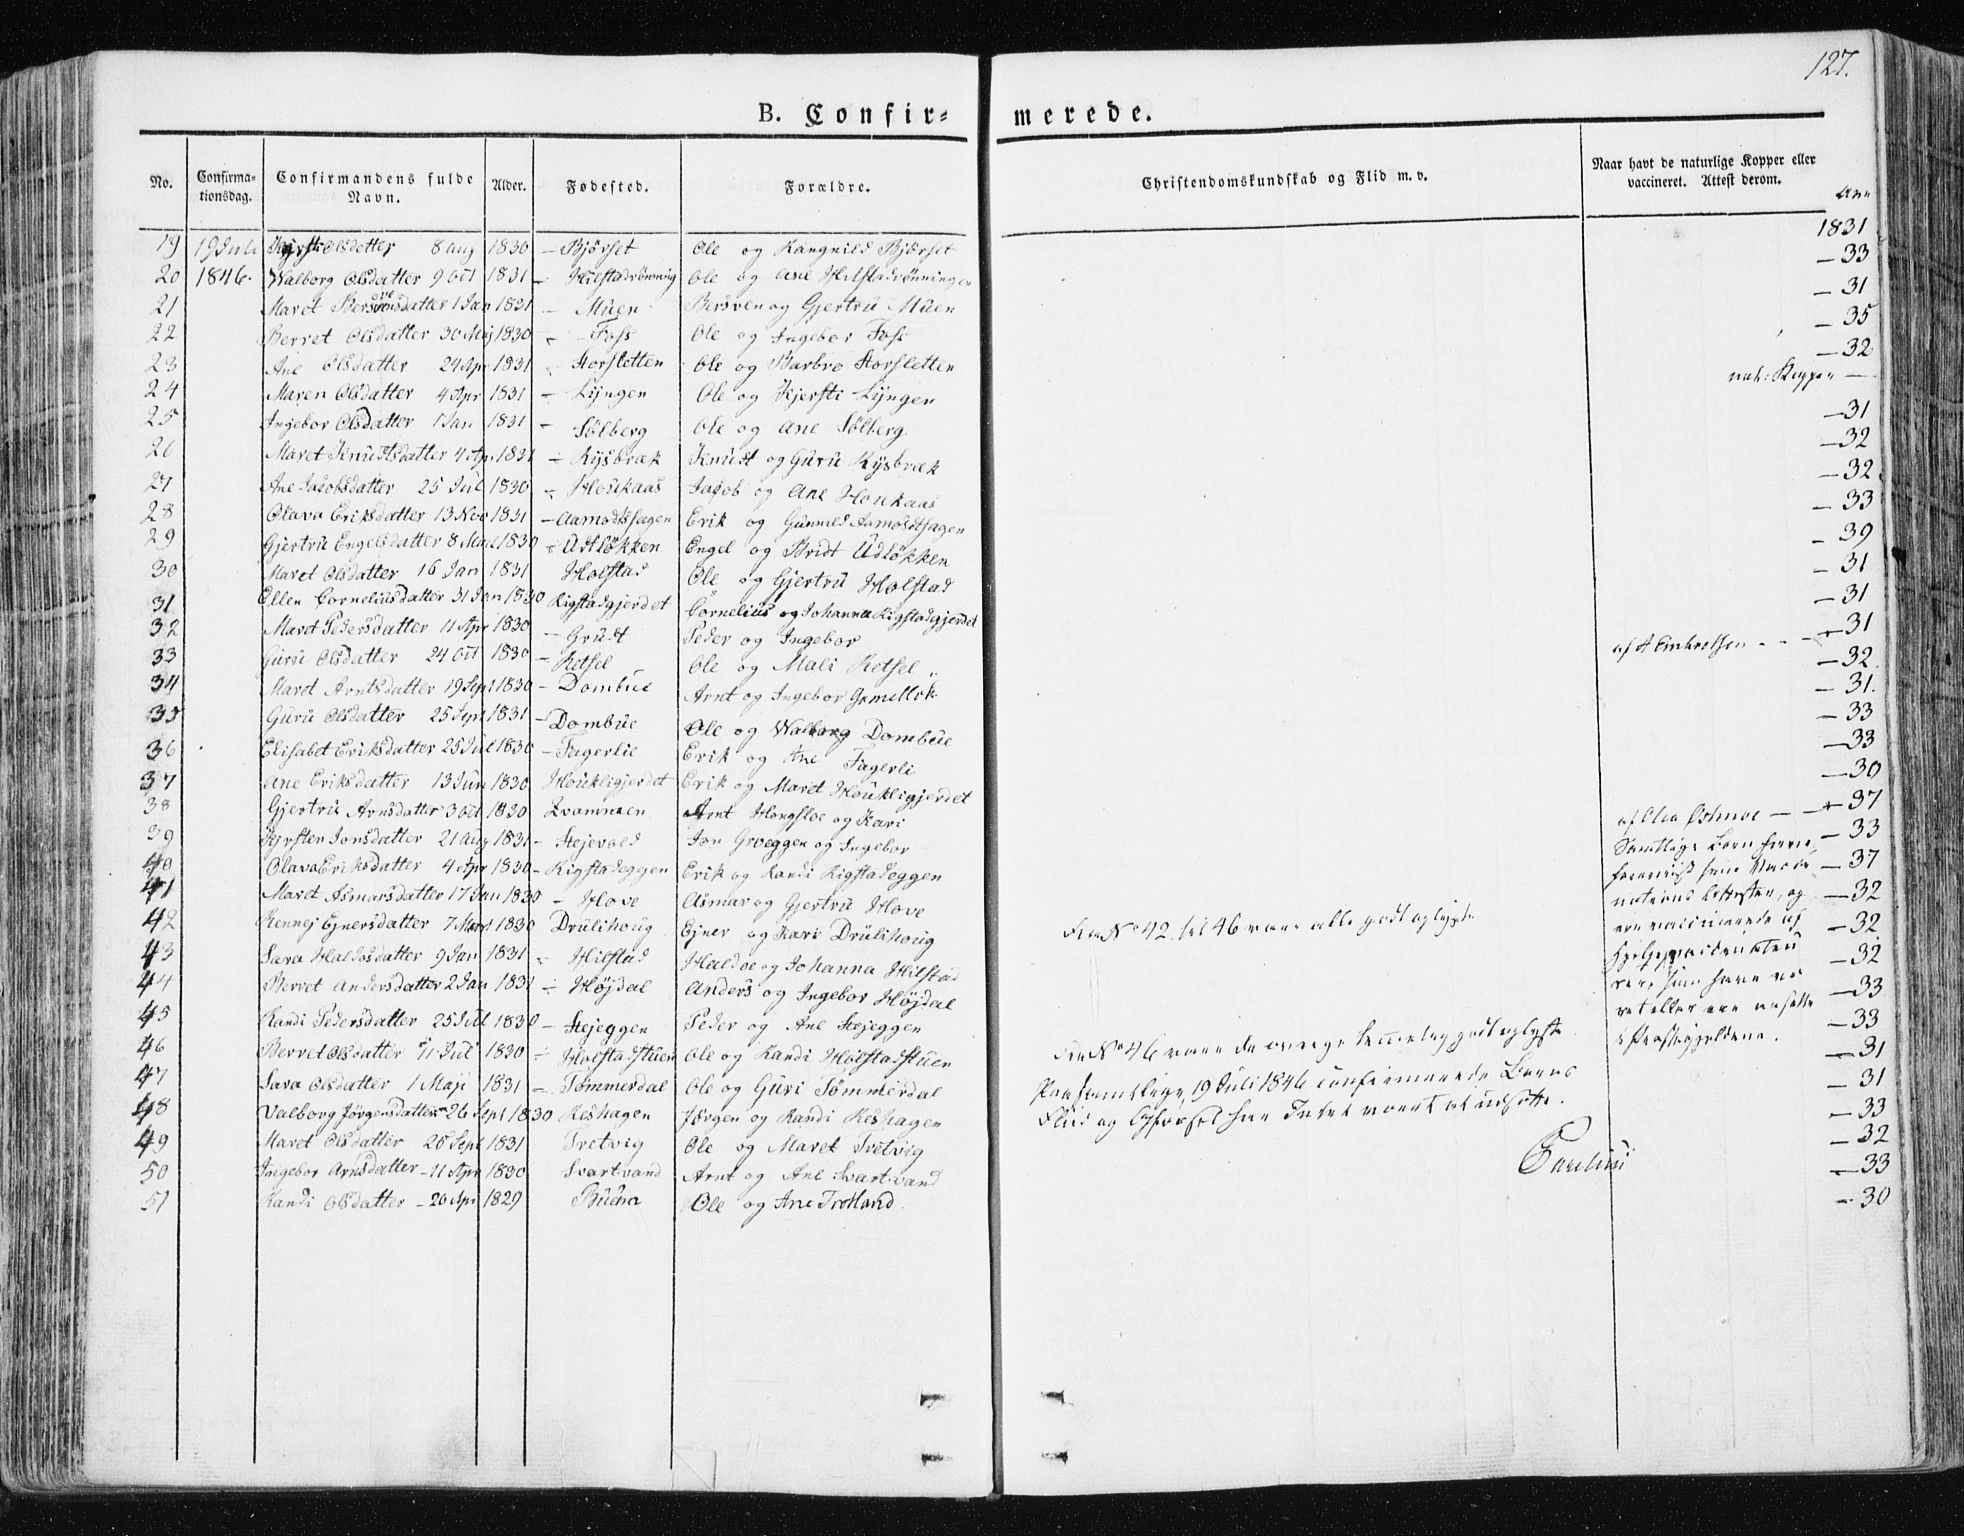 127.
B. Confir- merede.
No. Confirma-tionsdag. Confirmandens fulde Navn. Alder. Fødested. Forældre. Christendomskundskab og Flid m. v. Naar havt de naturlige Kopper eller vaccineret. Attest derom.
19 19 Juli Olsdatter 8 Aug 1830 - Bjørset Ole og Rangnild Bjørset 1831
20 1846. Walborg Olsdatter 9 Oct 1831 - Hilstadrønnig Ole og Ane Hilstadrønningen - 33
21 Maret datter 1 Jan 1831 - Muen Bersven og Gjertru Muen - 31
22 Berret Olsdatter 30 Maj 1830 - Foss Ole og Ingebor Foss - 35
23 Ane Olsdatter 24 Apr 1831 - Storsletten Ole og Barbro Storsletten - 32
24 Maren Olsdatter 4 Apr 1831 - Lyngen Ole og Kjersti Lyngen nat: Kopper -
25 Ingebor Olsdatter 1 Jan 1831 - Sølberg Ole og Ane Sølberg - 31
26 Maret Knudtsdatter 4 Ap. 1831 - Rysbræk Knudt og Guru Rysbræk - 32
27 Ane Jacobsdatter 25 Jul 1830 - Houkaas Jacob og Ane Houkaas - 32
28 Olava Eriksdatter 13 Nov 1831 - Aamodtshagen Erik og Gunnild - 33
29 Gjertru Engelsdatter 8 1830 - Udløkken Engel og Bridt Udløkken - 39
30 Maret Olsdatter 16 Jan 1831 Holstad Ole og Gjertru Holstad - 31
31 Ellen Corneliusdatter 31 Jan 1830 Rigstadgjerdet Cornelius og Johanna Rigstadgjerdet - 31
32 Maret Pedersdatter 11 Apr 1830 - Grudt Peder og Ingebor - 31
33 Guru Olsdatter 24 Oct 1830 - Retsel Ole og Mali Retsel - 32
34 Maret Arntsdatter 19 Sept 1830 - Dombue Arnt og Ingebor - 31.
35 Guru Olsdatter 25 Sept 1831 - Dombue Ole og Walborg Dombue - 33
36 Elisabet Eriksdatter 25 Jul 1830 - Fagerlie Erik og Ane Fagerli - 33
37 Ane Eriksdatter 13 Jun 1830 Houkligjerdet Erik og Maret Houkligjerdet - 30
38 Gjertru Arnsdatter 3 Oct 1830 Arnt og Kari - 37
39 Kjersten Jonsdatter 21 Aug 1831 - Stejevold Jon Groeggen og Ingebor - 33
40 Olava Eriksdatter 4 Apr 1830 - Rigstadeggen Erik og Randi Rigstadeggen - 37
41 Maret Asmarsdatter 17 Jan 1830 - Hove Asmar og Gjertru Hove - 32
42 Rennej Ejnersdatter 7 Mart 1830 Drulihoug Ejner og Kari Drulihoug - 32
43 Sara Haldosdatter 9 Jan 1831 - Hilstad Haldoe og Johanna Hilstad - 32
44 Berret Andersdatter 2 Jan 1831 - Højdal Anders og Ingebor Højdal - 33
45 Randi Pedersdatter 25 Jul 1830 - Stejeggen Peder og Ane Stejeggen - 33
46 Berret Olsdatter 11 Jul 1830 - Holstadstuen Ole og Randi Holstadstuen - 31
47 Sara Olsdatter 1 Maji 1831 - Tømmerdal Ole og Guri Tømmerdal - 31
48 Valborg Jørgensdatter 26 Sept 1830 Reshagen Jørgen og Randi Reshagen - 33
49 Maret Olsdatter 26 Sept 1831 Tretvig Ole og Maret Tretvig - 32
50 Ingebor Arnsdatter - 11 Apr 1830 Svartvand Arnt og Ane Svartvand - 33
51 Randi Olsdatter - 20 Apr 1829 Ole og Ane - 30
No 42 til 46 vare alle godt oplyste
No 46 vare de godt oplyste
19 Juli 1846 confirmerede Børns
Flid og Opførsel har Intet været at udsætte.